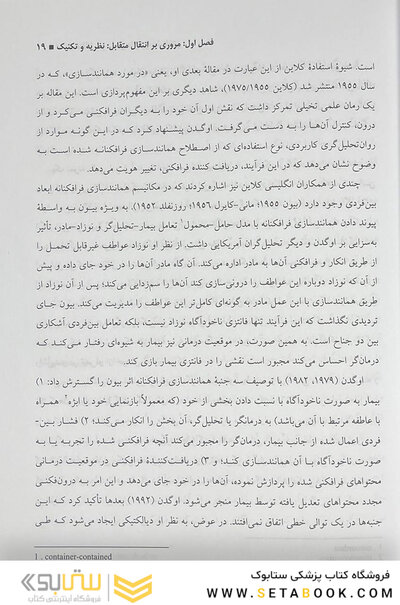 فصل اول: مروری بر انتقال متقابل: نظریه و تکنیک ■ ۱۹
است. شیوهٔ استفادهٔ کلاین از این عبارت در مقالهٔ بعدی او، یعنی «در مورد همانندسازی»، که در
سال ۱۹۵۵ منتشر شد (کلاین ۱۹۷۵/۱۹۵۵)، شاهد دیگری بر این مفهوم‌پردازی است. این مقاله بر
یک رمان علمی تخیلی تمرکز داشت که نقش اول آن خود را به دیگران فرافکنی می‌کرد و از
درون، کنترل آن‌ها را به دست می‌گرفت. اوگدن پیشنهاد کرد که در این گونه موارد از
روان‌تحلیل‌گری کاربردی، نوع استفاده‌ای که از اصطلاح همانندسازی فرافکنانه شده است به
وضوح نشان می‌دهد که در این فرآیند، دریافت کننده فرافکنی، تغییر هویت می‌دهد.
چندی از همکاران انگلیسی کلاین نیز اشاره کردند که در مکانیسم همانندسازی فرافکنانه ابعاد
بین‌فردی وجود دارد (بیون ۱۹۵۵؛ مانی-کایرل ۱۹۵۶؛ روزنفلد ۱۹۵۲). به ویژه بیون به واسطهٔ
پیوند دادن همانندسازی فرافکنانه با مدل حامل-محمول۱ تعامل بیمار-تحلیل‌گر و نوزاد-مادر، تأثیر
به‌سزایی بر اوگدن و دیگر تحلیل‌گران آمریکایی داشت. از نظر او نوزاد عواطف غیرقابل تحمل را
از طریق انکار و فرافکنی آن‌ها به مادر اداره می‌کند. آن گاه مادر آن‌ها را در خود جای داده و پیش
از آن که نوزاد دوباره این عواطف را درونی‌سازی کند آن‌ها را سم‌زدایی می‌کند؛ پس از آن نوزاد از
طریق همانندسازی با این عمل مادر به گونه‌ای کامل‌تر این عواطف را مدیریت می‌کند. بیون جای
تردیدی نگذاشت که این فرآیند تنها فانتزی ناخودآگاه نوزاد نیست، بلکه تعامل بین‌فردی آشکاری
بین دو جناح است. به همین صورت، در موقعیت درمانی نیز بیمار به شیوه‌ای رفتار می‌کند که
درمان‌گر احساس می‌کند مجبور است نقشی را در فانتزی بیمار بازی کند.
اوگدن (۱۹۷۹، ۱۹۸۲) با توصیف سه جنبهٔ همانندسازی فرافکنانه اثر بیون را گسترش داد: ۱)
بیمار به صورت ناخودآگاه با نسبت دادن بخشی از خود (که معمولاً بازنمایی خود یا ابژه۲ همراه
با عاطفه مرتبط با آن می‌باشد) به درمانگر یا تحلیل‌گر، آن بخش را انکار می‌کند؛ ۲) فشار بین-
فردی اعمال شده از جانب بیمار، درمان‌گر را مجبور می‌کند آنچه فرافکنی شده را تجربه یا به
صورت ناخودآگاه با آن همانندسازی کند؛ و ۳) دریافت‌کنندهٔ فرافکنی در موقعیت درمانی
محتواهای فرافکنی شده را پردازش نموده، آن‌ها را در خود جای می‌دهد و این امر به درون‌فکنی
مجدد محتواهای تعدیل یافته توسط بیمار منجر می‌شود. اوگدن (۱۹۹۲) بعدها تأکید کرد که این
جنبه‌ها در یک توالی خطی اتفاق نمی‌افتند. در عوض، به نظر او دیالکتیکی ایجاد می‌شود که طی
1 . container-contained
ستابوک
فروشگاه اینترنتی کتاب
فروشگاه کتاب پزشکی ستابوک
WWW.SETABOOK.COM